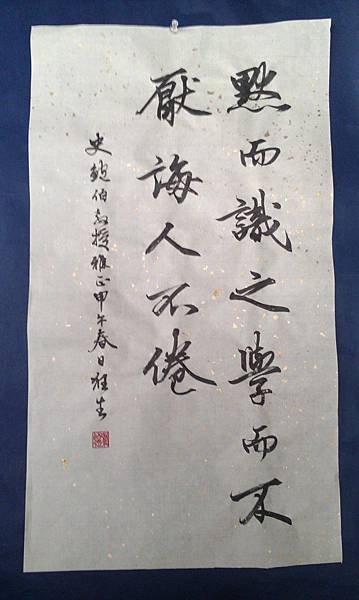 默而識之學而不
厭誨人不倦
史甄伯教授雅正甲午春日雅生